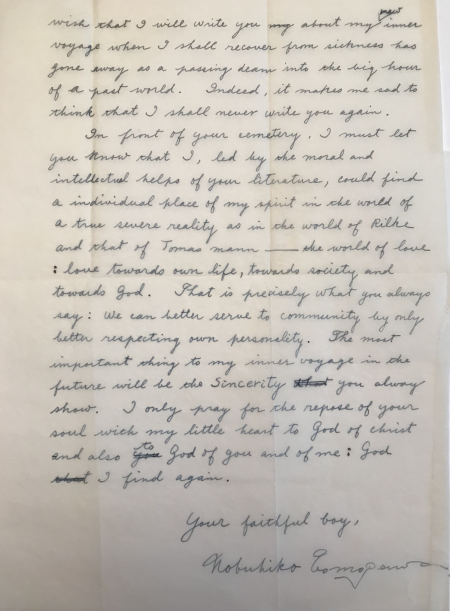 wish that I will write you my about my new inner
voyage when I shall recover from sickness has
gone away as a passing deam into the big hour
of a past world. Indeed, it makes me sad to
think that I shall never write you again.
In front of your cemetery, I must let
you know that I, led by the moral and
intellectual helps of your literature, could find
a individual place of my spirit in the world of
a true severe reality as in the world of Rilke
and that of Tomas mann — the world of love
: love towards own life, towards society and
towards God. That is precisely what you always
say: We can better serve to community by only
better respecting own personality. The most
important thing to my inner voyage in the
future will be the Sincerity that you alway
show. I only pray for the repose of your
soul with my little heart to God of christ
and also to God of you and of me: God
that I find again.
Your faithful boy,
Nobuhiko